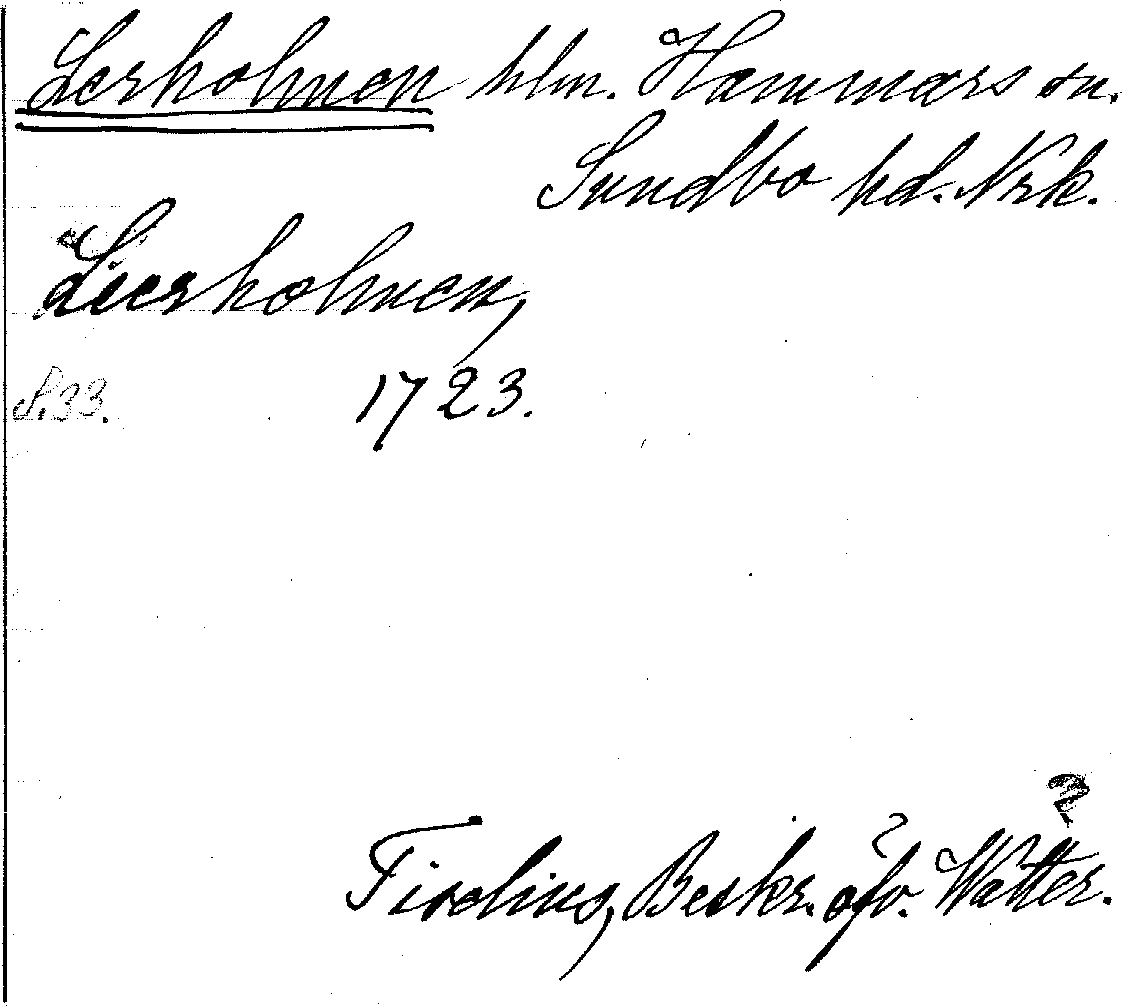 Lerholmen hlm. Hammars sn.
Sundbo hd. Nrk.
Leerholmen,
S. 33. 1723.
Tiselius, Beskr. öfv. Wätter.